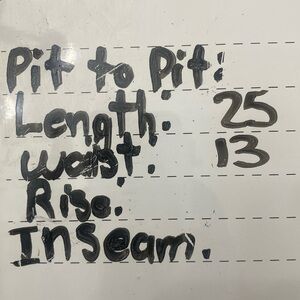 Pit to Pit:
Length. 25
waist. 13
Rise.
Inseam.